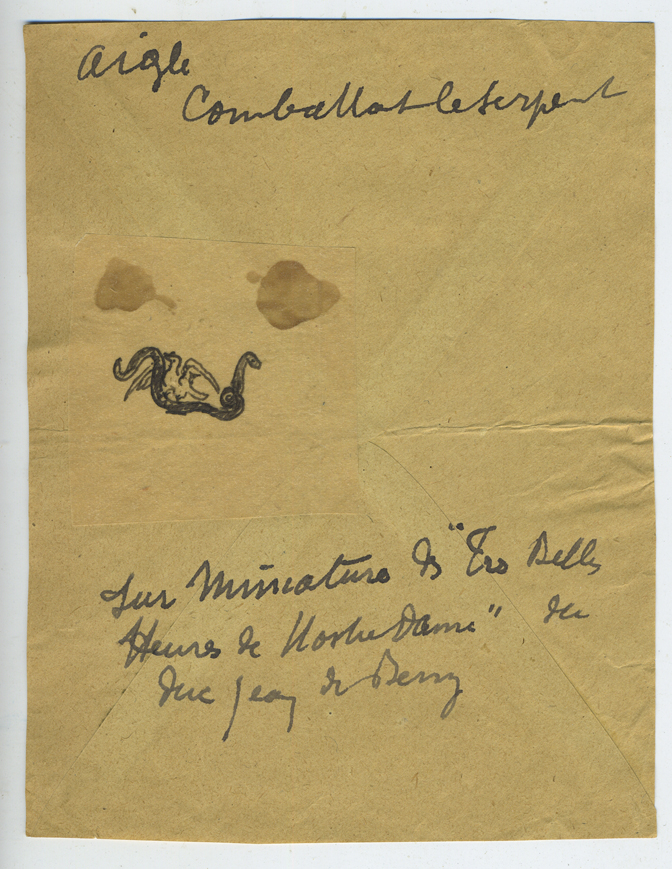 Aigle
Combattant le serpent
sur Miniature des "Très Belles
Heures de Nostre Dame" du
duc Jean de Berry